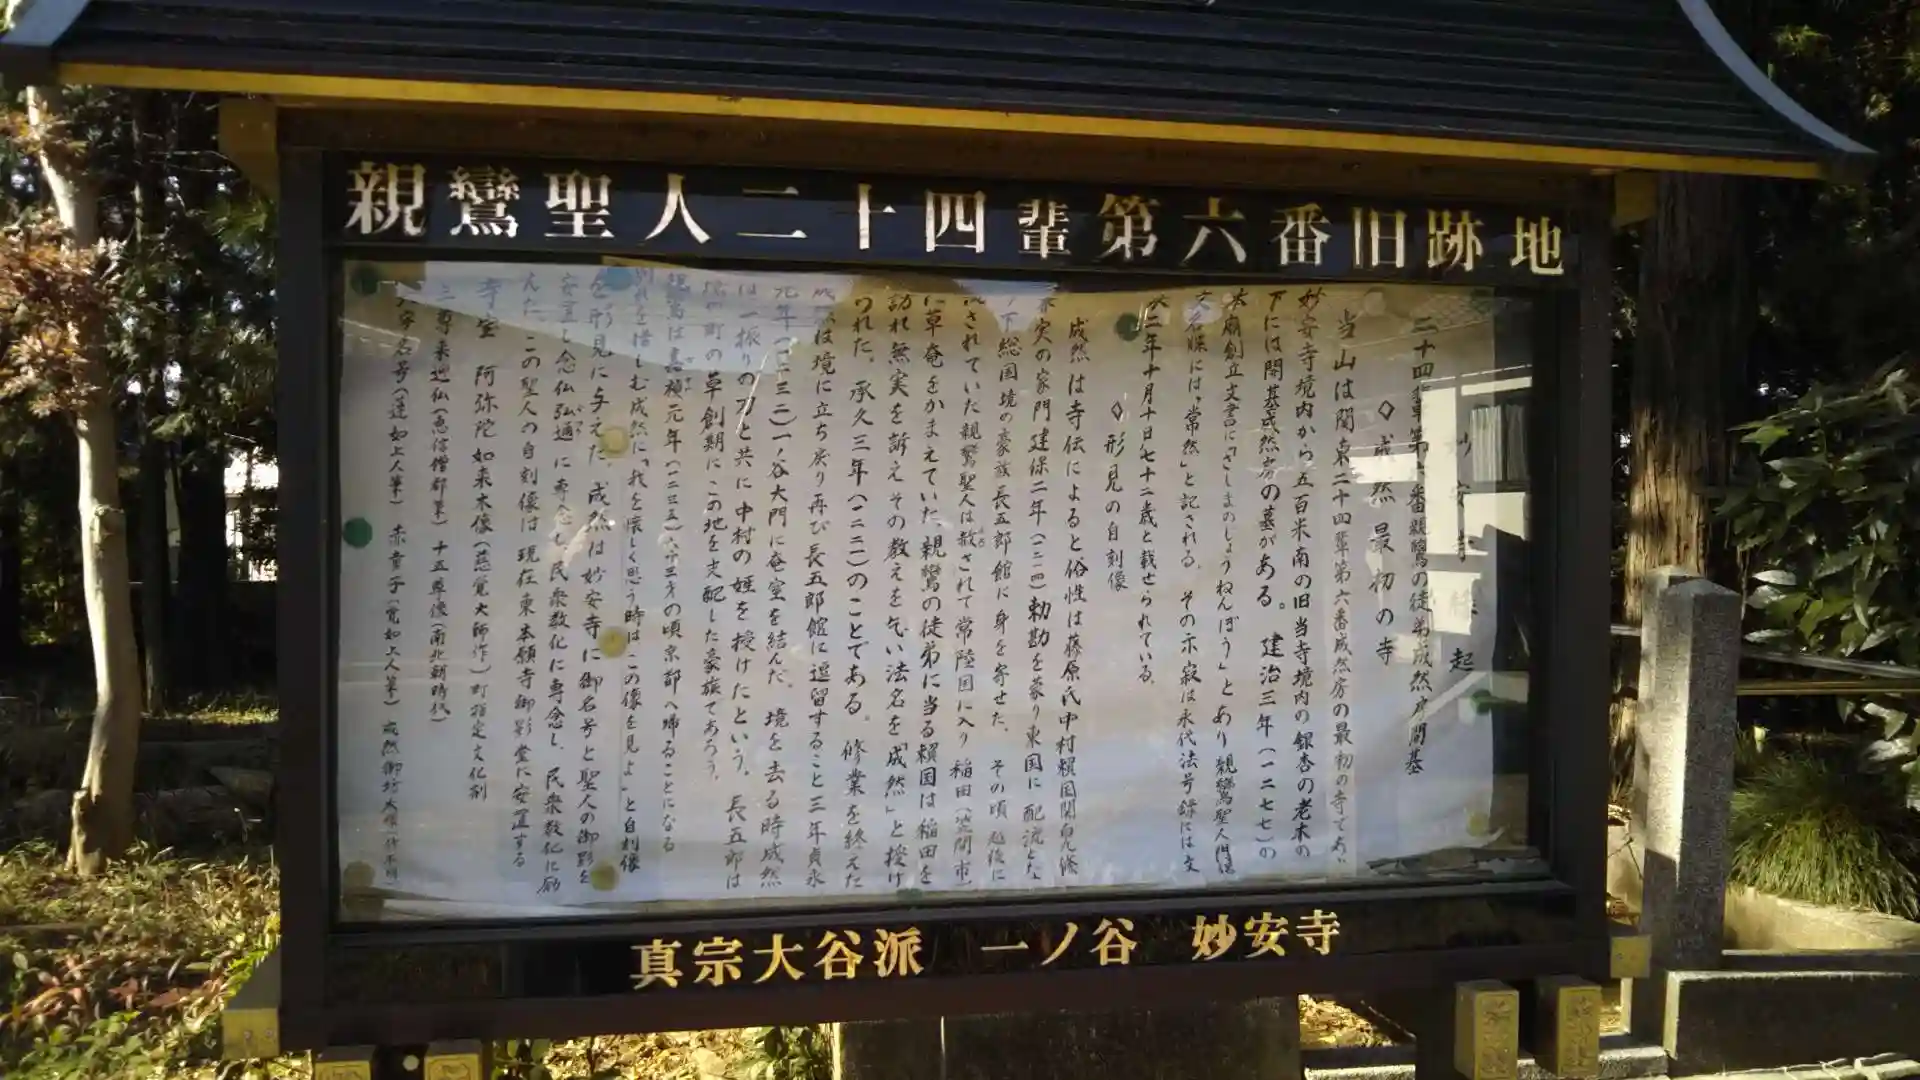 親鸞聖人二十四輩第六番旧跡地
妙安寺縁起
二十四輩第六番親鸞の徒弟成然房開基
◇成然最初の寺
当山は関東二十四輩第六番成然房の最初の寺であり
妙安寺境内から五百米南の旧当寺境内の銀杏の老木の
下には開基成然房の墓がある。建治三年(一二七七)の
本廟創立文書に「さしまのしょうねんぼう」とあり親鸞聖人門侶
交名牒には「常然」と記される。その示寂は永代法号録には文
永二年十月十日七十二歳と載せられている。
◇形見の自刻像
成然は寺伝によると俗性は藤原氏中村頼国関白九條
兼実の家門建保二年(一二一四)勅勘を蒙り東国に配流とな
り下総国境の豪族長五郎館に身を寄せた。その頃越後に
流されていた親鸞聖人は赦されて常陸国に入り稲田(笠間市)
に草庵をかまえていた親鸞の徒弟に当る頼国は稲田を
訪れ無実を訴えその教えを乞い法名を「成然」と授け
られた。承久三年(一二二一)のことである。修業を終えた
成然は境に立ち戻り再び長五郎館に逗留すること三年貞永
元年(一二三二)一ノ谷大門に庵室を結んだ。境を去る時成然
は一振りの刀と共に中村の姓を授けたという。長五郎は
境町の草創期にこの地を支配した豪族であろう。
親鸞は嘉禎元年(一二三五)六十三才の頃京都へ帰ることになる
別れを惜しむ成然に「我を懐しく思う時はこの像を見よ」と自刻像
を形見に与えた。成然は妙安寺に御名号と聖人の御影を
安置し念仏弘通に専念し民衆教化に専念し、民衆教化に励
んだ。この聖人の自刻像は現在東本願寺御影堂に安置する
寺宝 阿弥陀如来木像(慈覚大師作)町指定文化財
三尊来迎仏(恵信僧都筆) 十五尊像(南北朝時代)
六字名号(蓮如上人筆) 赤童子(覚如上人筆) 成然御坊木像(作不明)
真宗大谷派 一ノ谷 妙安寺